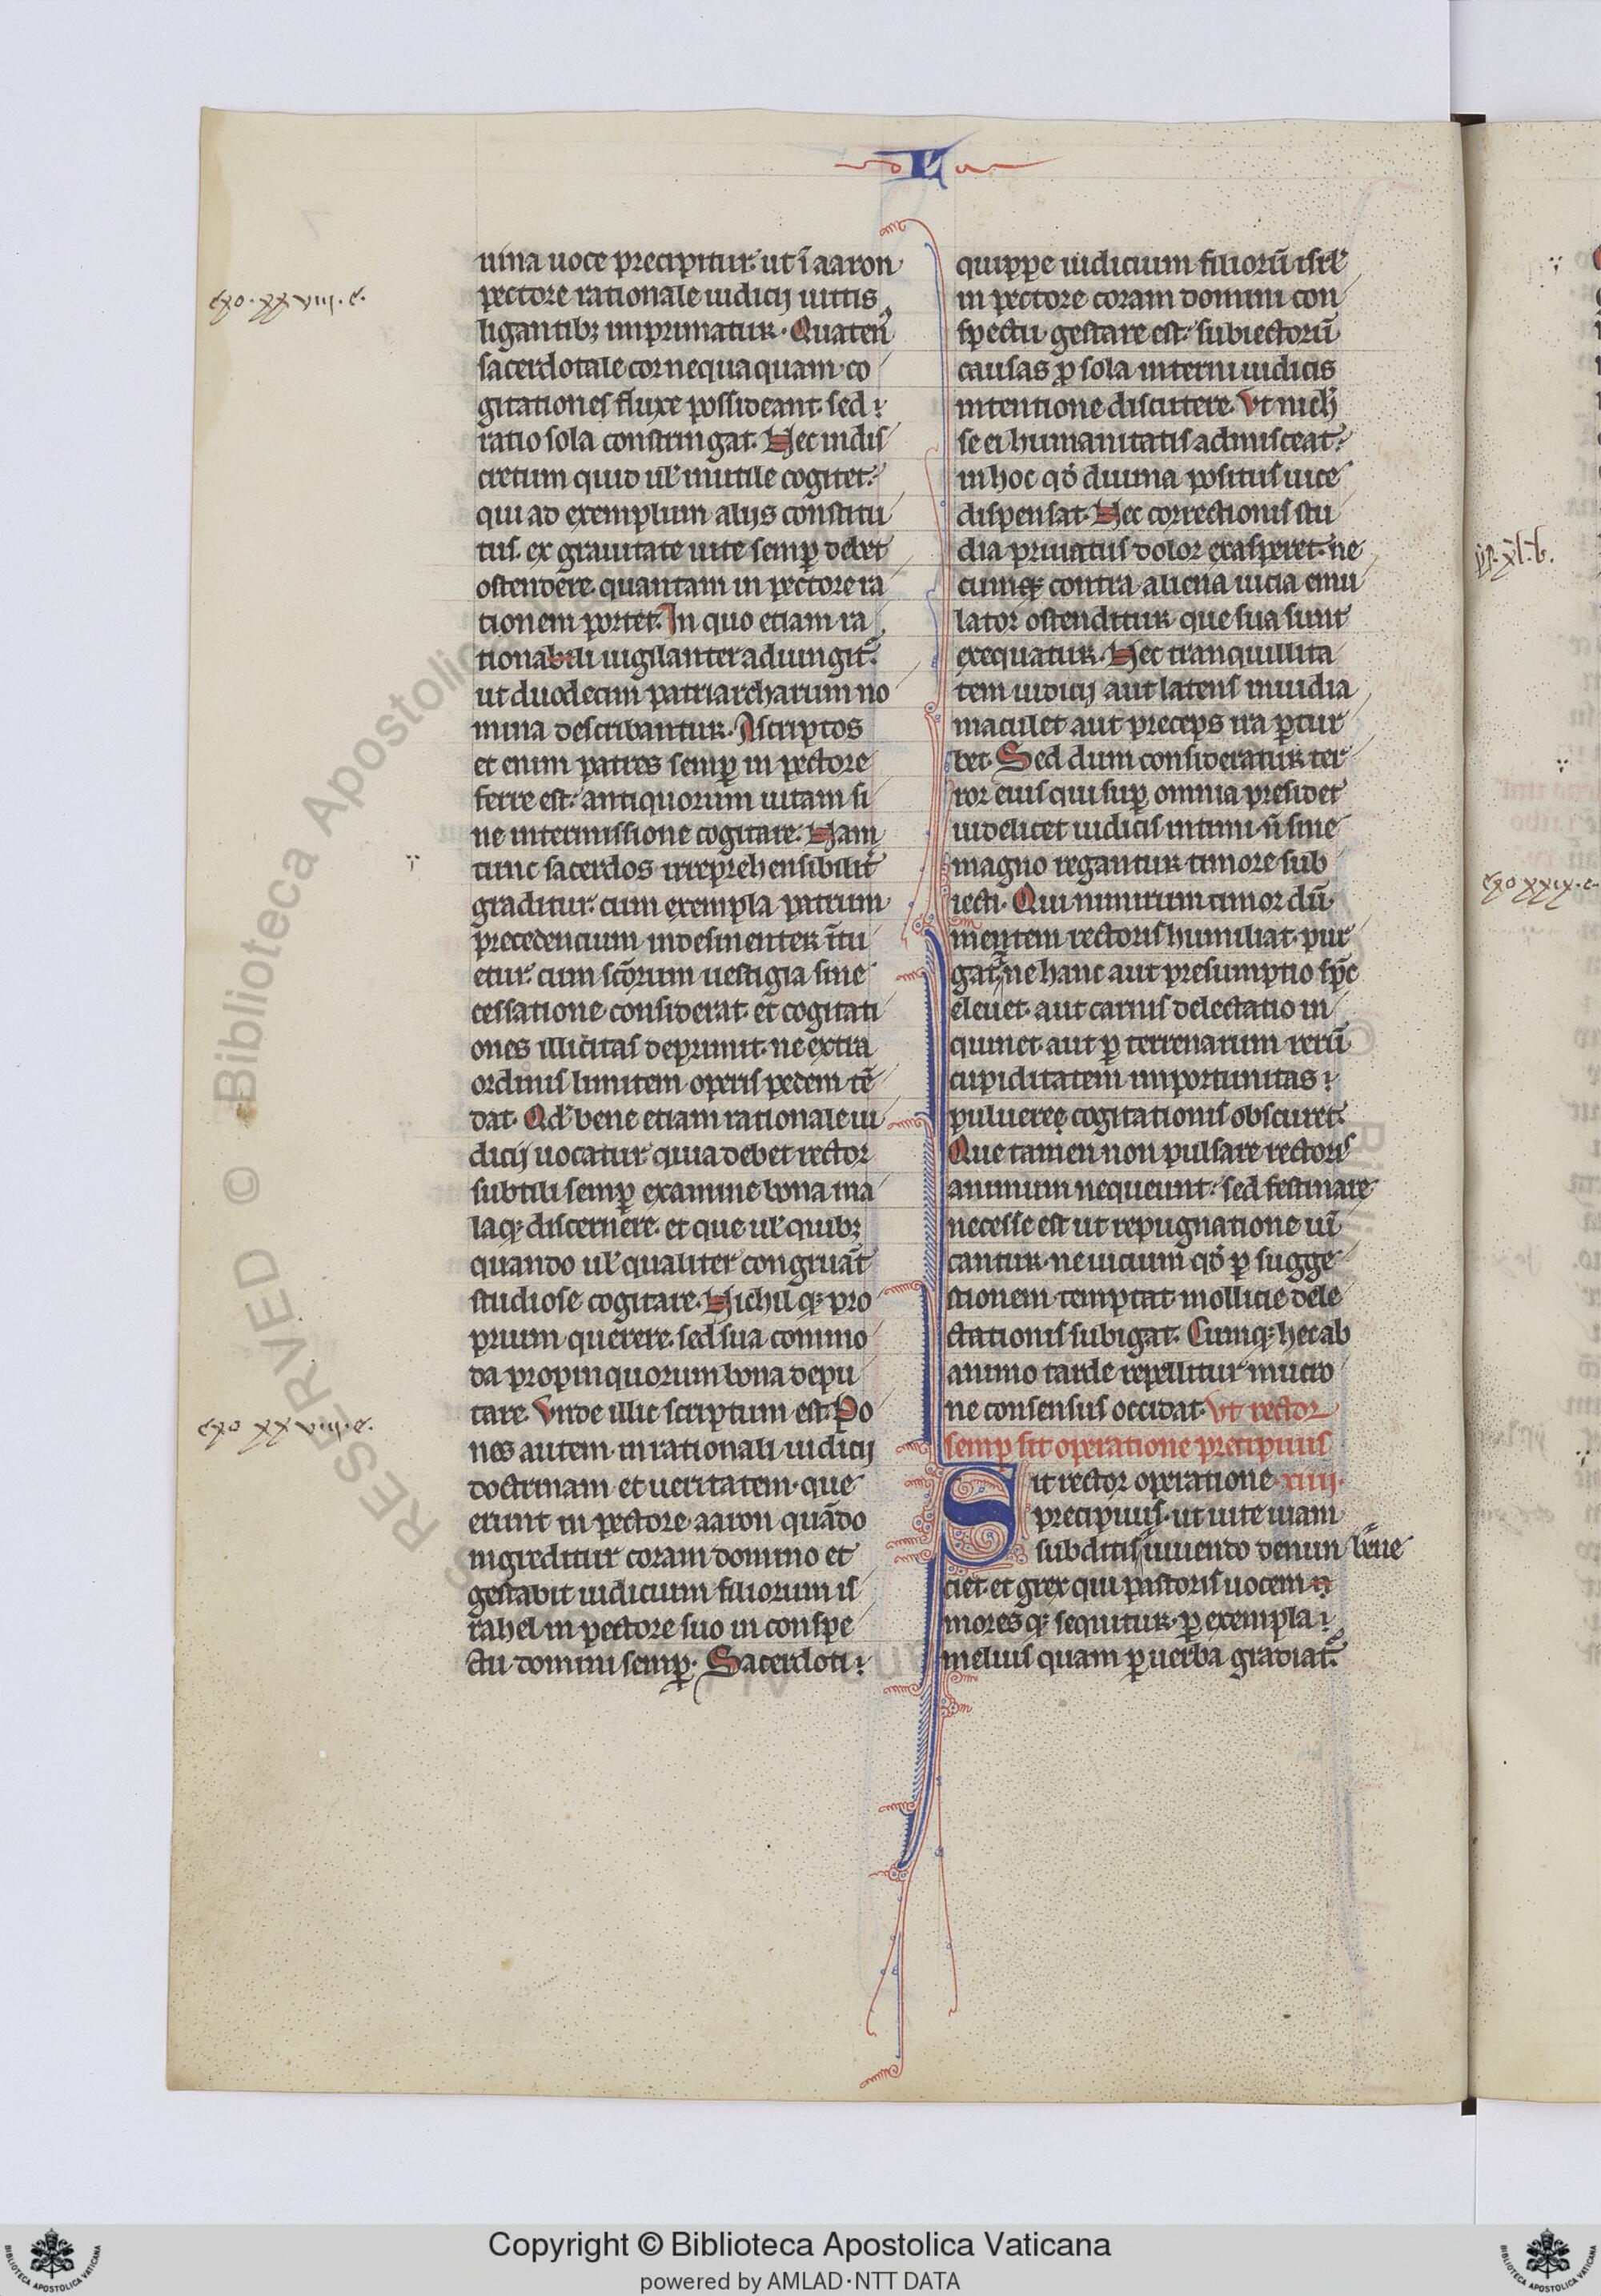 L
uina uoce precipitur. ut ī aaron
exo. xxviii. e.
pectore rationale iudicij uittis
ligantibꝫ imprimatur. Quaten᷒
sacerdotale cor nequaquam co
gitationes fluxe possideant. sed
ratio sola constringat. Nec indis
cretum quid uel inutile cogitet.
qui ad exemplum alijs constitu
tus. ex grauitate uite semꝑ debet
ostendere. quantam in pectore ra
tionem portet. In quo etiam ra
tionabili uigilanter adiungit᷑.
ut duodecim patriarcharum no
mina describantur. Ascriptos
et enim patres semꝑ in pectore
ferre est. antiquorum uitam si
ne intermissione cogitare. Nam
tunc sacerdos irreprehensibilit̕
graditur. cum exempla patrum
precedencium indesinenter ītu
etur. cum sc̄orum uestigia sine
cessatione considerat. et cogitati
ones illicitas deprimit. ne extra
ordinis limitem operis pedem tē
dat. Qd̕ bene etiam rationale iu
dicij uocatur quia debet rector
subtili semꝑ examine bona ma
laqꝫ discernere. et que ul̕ quibꝫ
quando ul̕ qualiter congruāt
studiose cogitare. Nichil qꝫ pro
prium querere. sed sua commo
da propinquorum bona depu
tare. Vnde illic scriptum est. Po
exo xxviii. e.
nes autem in rationali iudicij
doctrinam et ueritatem. que
erunt in pectore aaron quādo
ingreditur coram domino et
gestabit iudicium filiorum is
rahel in pectore suo in conspe
ctu domini semꝑ. Sacerdoti
quippe iudicium filiorū isrl̕
in pectore coram domini con
spectu gestare est. subiectorū
causas ꝓ sola interni iudicis
intentione discutere. Vt nich̕
se ei humanitatis admisceat.
in hoc qd̕ diuina positus uice
dispensat. Nec correctionis stu
dia priuatus dolor exasperet. ne
cumqꝫ contra aliena uicia emu
lator ostenditur que sua sunt
exequatur. Nec tranquillita
tem iudicij aut latens inuidia
maculet aut preceps ira ꝑtur
bet. Sed dum consideratur ter
ror eius qui suꝑ omnia presidet
uidelicet iudicis intimi. n̄ sine
magno regantur timore sub
iecti. Qui nimirum timor dū
mentem rectoris humiliat. pur
gat. ne hanc aut presumptio sp̄c
eleuet. aut carnis delectatio in
quinet. aut ꝑ terrenarum rerū
cupiditatem importunitas
puluereę cogitationis obscuret.
Que tamen non pulsare rectoris
animum nequeunt. sed festinare
necesse est ut repugnatione uī
cantur. ne uicium qd̕ ꝑ sugge
stionem temptat mollicie dele
ctationis subigat. Cumqꝫ hec ab
animo tarde repellitur mucro
ne consensus occidat. Vt rector
semꝑ sit operatione precipuus
Sit rector operatione xiiii.
precipuus. ut uite uiam
subditis uiuendo denun
ciet et grex qui pastoris uocem
moresqꝫ sequitur. ꝑ exempla
melius quam ꝑ uerba gradiat᷑.
exo xxix. e.
RESERVED © Biblioteca Apostolica
Copyright © Biblioteca Apostolica Vaticana
powered by AMLAD·NTT DATA